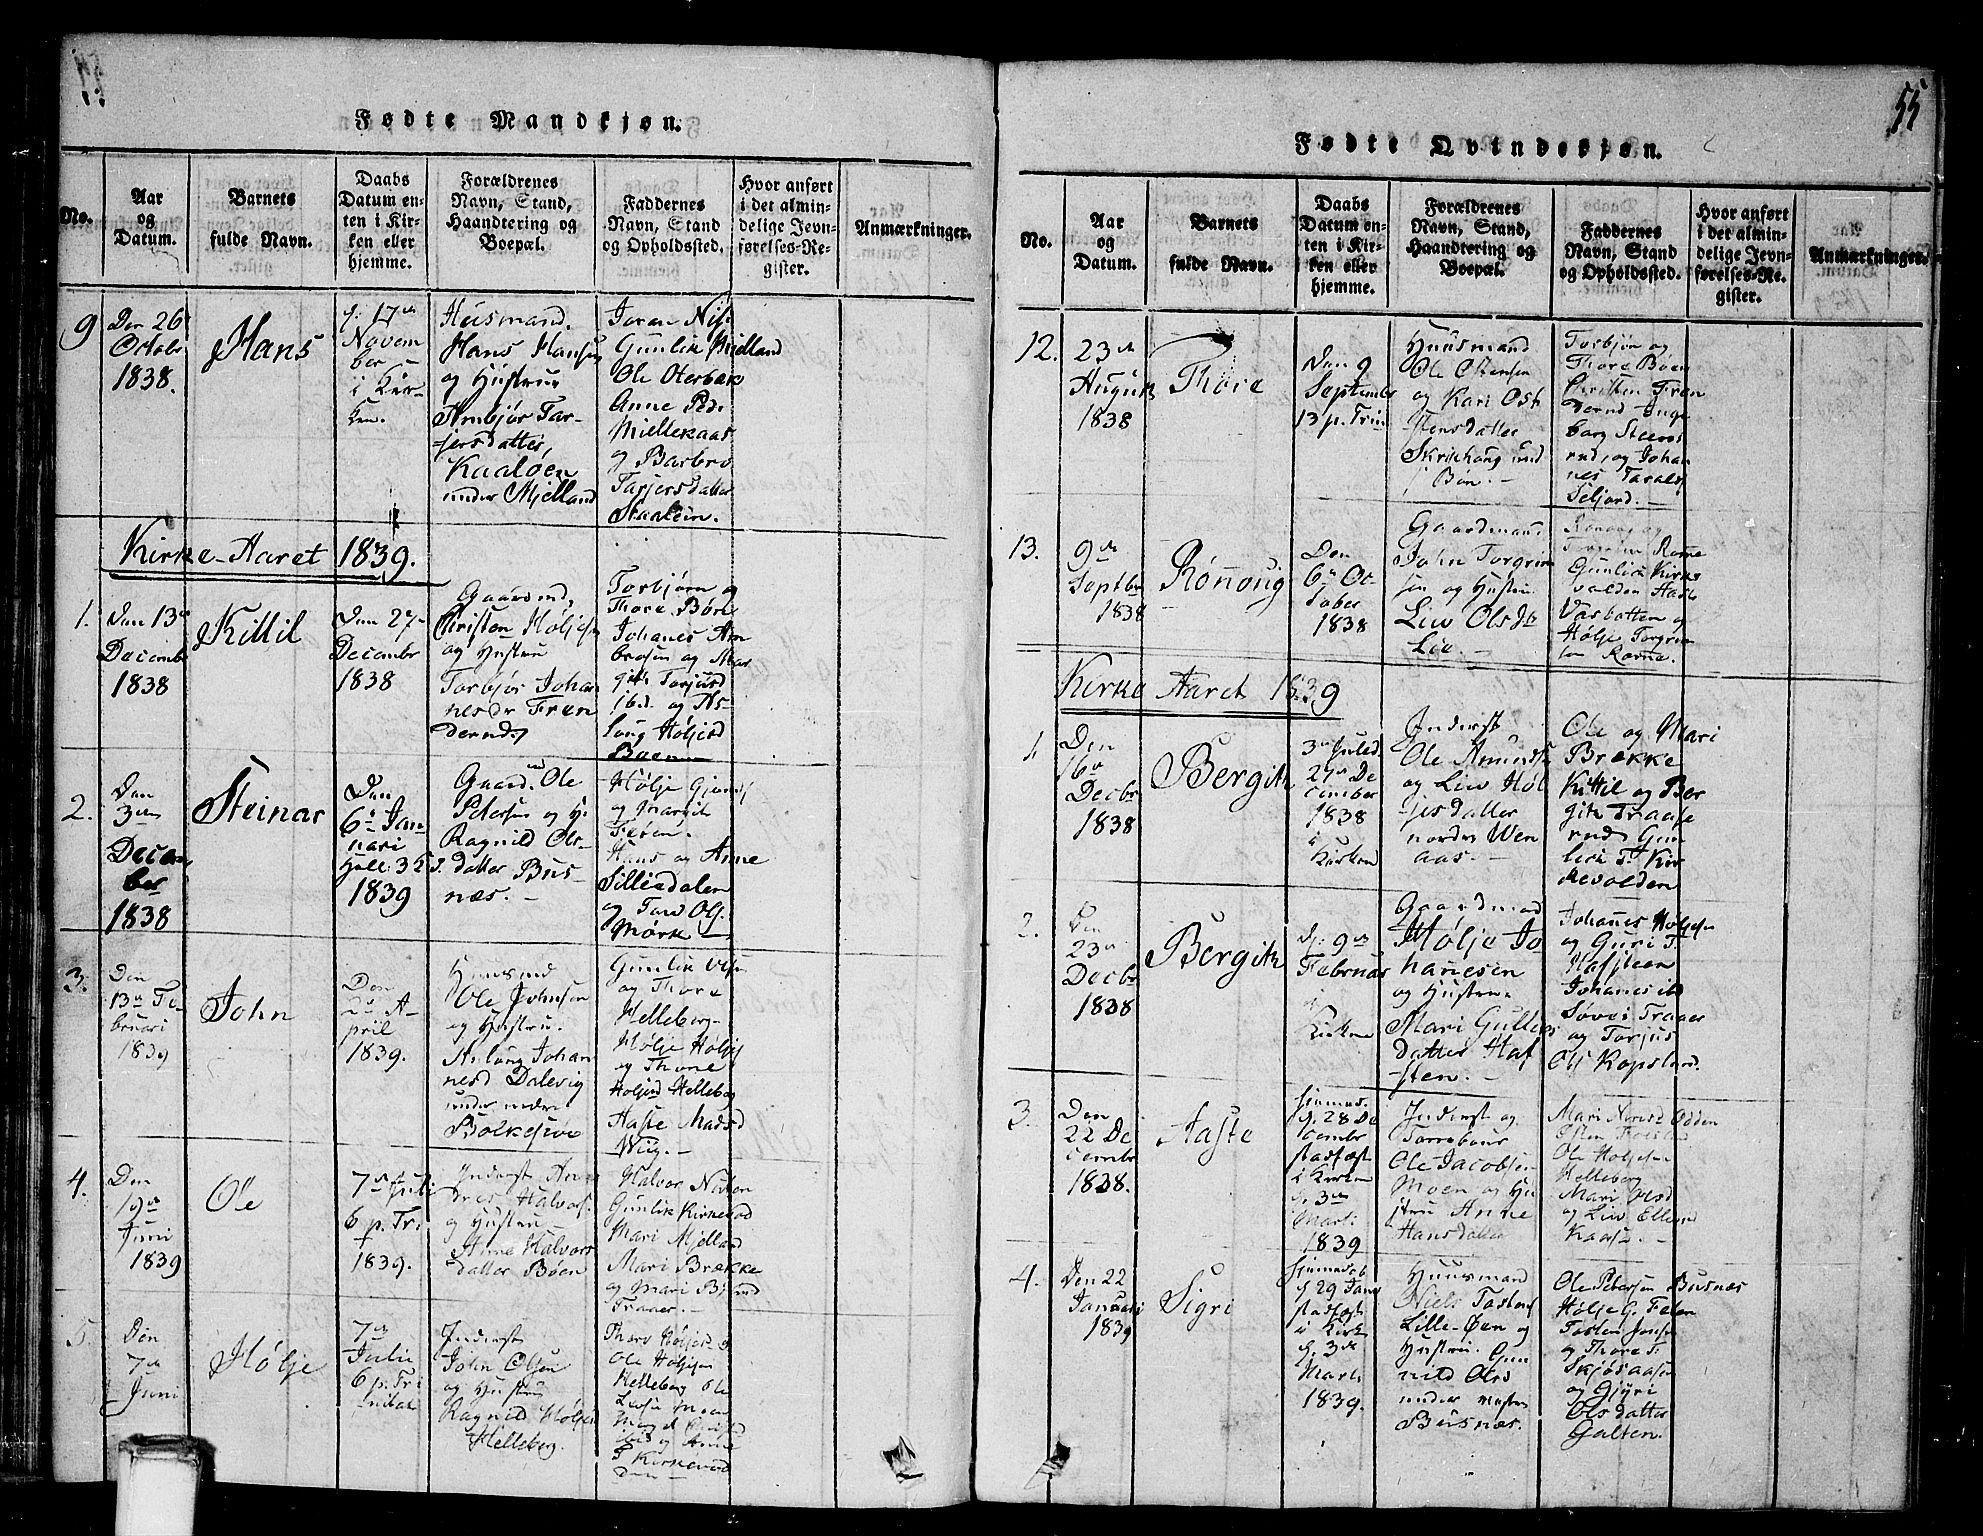 Fødte Mandkjøn.
No.
Aar
og
Datum.
Barnets
fulde Navn.
Daabs
Datum en-
ten i Kir-
ken eller
hjemme.
Forældrenes
Navn, Stand,
Haandtering og
Boepæl.
Faddernes
Navn, Stand
og Opholdssted.
Hvor anført
i det almin-
delige Jevn-
førelses-Re-
gister.
Anmærkninger.
9
Den 26
Octobr
1838.
Hans
17de
Novem
ber
i Kir-
ken.
Husmand.
Hans Hansen
og Hustrue
Arnbjør Tar-
jersdatter,
Kaaløen
under Mjelland
Joran Nils.
Gunlik Mjelland
Ole Oterbæk
Anne Ped.
Millekaas
og Barbro
Tarjersdatter
Staalein.
Kirke-Aaret 1839.
1.
Den 13de
Decemb
1838
Kittil
Den 27
Decembr
1838
Gaardmd,
Christen Høljesen
og Hustru
Torbjør Johan
nesdr Fren
derud
Torbjørn og
Thore Bøe
Johanes Am
brosen og Mar
git Torjusd
ibd. og As-
loug Høljesd
Boem
2.
Den
3die
Decem
ber
1838
Steinar
Den
6te Jan
uari
Hell. 3 K.
1839
Gaard. Ole
Petersen og H.
Ragnild Ols-
datter Bus-
næs.
Hølje
og Margit
Feten.
Hans og Anne
Silliesdalen
og Tow Ols.
Mørk
3.
Den
13de Fe
bruari
1839
John
Den
A-
pril
1839.
Huusmd
Ole Johnsen
og Hustru.
Asloug Johan
nesd Dalevig
under nedre
Bolkesjøe
Gunlik Olsen
og Thore
Helleberg
Hølje Høljes
og Thone
Høljesd Helleberg
Aaste Madsd
Wiig.
4.
Den
19de
Juni
1839
Ole
7de Juli
6 p. Tri
1839.
Inderst An
dres Halvors.
og Hustru
Anne Halvors
datter Bøen
Halvor
Gunlik Kirkevold
Mari Mjelland
Mari Brække
og Mari
Traaer.
5.
Den
7de
Juni
Hølje
7de
Julie
6 p. Tri
nitat
Inderst
John Olsen
og Hustru
Ragnild Høljes
Helleberg.
Thore
Ole Høljesen
Helleberg Ole
Moen
og Anne
Kirkevold
55
Fødte Qvindekjøn.
No.
Aar
og
Datum.
Barnets
fulde Navn.
Daabs
Datum en-
ten i Kir-
ken eller
hjemme.
Forældrenes
Navn, Stand,
Haandtering og
Boepæl.
Faddernes
Navn, Stand
og Opholdssted.
Hvor anført
i det almin-
delige Jevn-
førelses-Re-
gister.
Anmærkninger.
12.
23de
August
1838
Thore
Den 9
Septembr
13 p. Trin
Huusmand
Ole Ostensen
og Kari Ost
stensdatter
Skrikhoug
Bøn.
Torbjør og
Thore Bøen
Christen Fren
derud Inge
borg Staerns
rud, og Johan
nes Taralds
Seljord.
13.
9de
Septbr
1838
Rønoug
Den
6te Oc
tober
1838
Gaardmand
John Torgrim
sen og Hustru
Liw Olsdtr
Lie.
Rønoug og
Ramne
Gunlik Kirke
volden Aaste
Vasbotten og
Hølje Torgrim
sen Ramne.
Kirke Aaret 1839
1
Den
16de
Decbr
1838
Bergith
3die Juled
27de De
cember
1838
i
Kirken
Inderst
Ole Amunds
og Liw Høl
jesdatter
nordre Wen
aas.
Ole og Mari
Brække
Kittil og Ber
gith Traase
rud Gun
leik T. Kir
kevolden
2.
Den
23de
Decbr
1838
Bergith
D. 9de
Februar
i
Kirken
Gaardmand
Hølje Jo
hanesen
og Hustru
Mari Gulleks
datter Haf
sten.
Johanes Høljesen
og Guri T.
Hafsteen
Johanes ibd
Søvei Traaer
og Torjus
Ols Kopsland.
3.
Den
22 De
cembr
1838.
Aaste
hjemme
d. 28 De
cembr
stadfæst
i Kirken
d. 3die
Marti
1839
Inderst og
Ole Jacobsen
Moen og Hu
stru Anne
Hansdatter
Mari Odden
Østen
Ole Høljesen
Helleberg
Mari Olsd
og Liw
Kaasa.
4.
Den 22
Januari
1839
Sigri
hjemedøb
d. 29 Jans
stadfæst
i Kirk
d. 3die
Marti
1839.
Huusmand
Niels Tostens
Lille-Øen og
Hustru. Gun
nild Olsd
under vestre
Busnæs.
Ole Petersen Busnæs
Hølje G. Feten
Tosten Jensen
og Thore T.
Skjøsaasen
og Gjyri
Olsdatter
Galten.